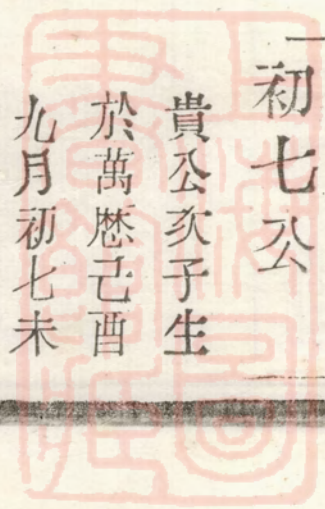 初七公
貴公次子生
於萬厯己酉
九月初七未